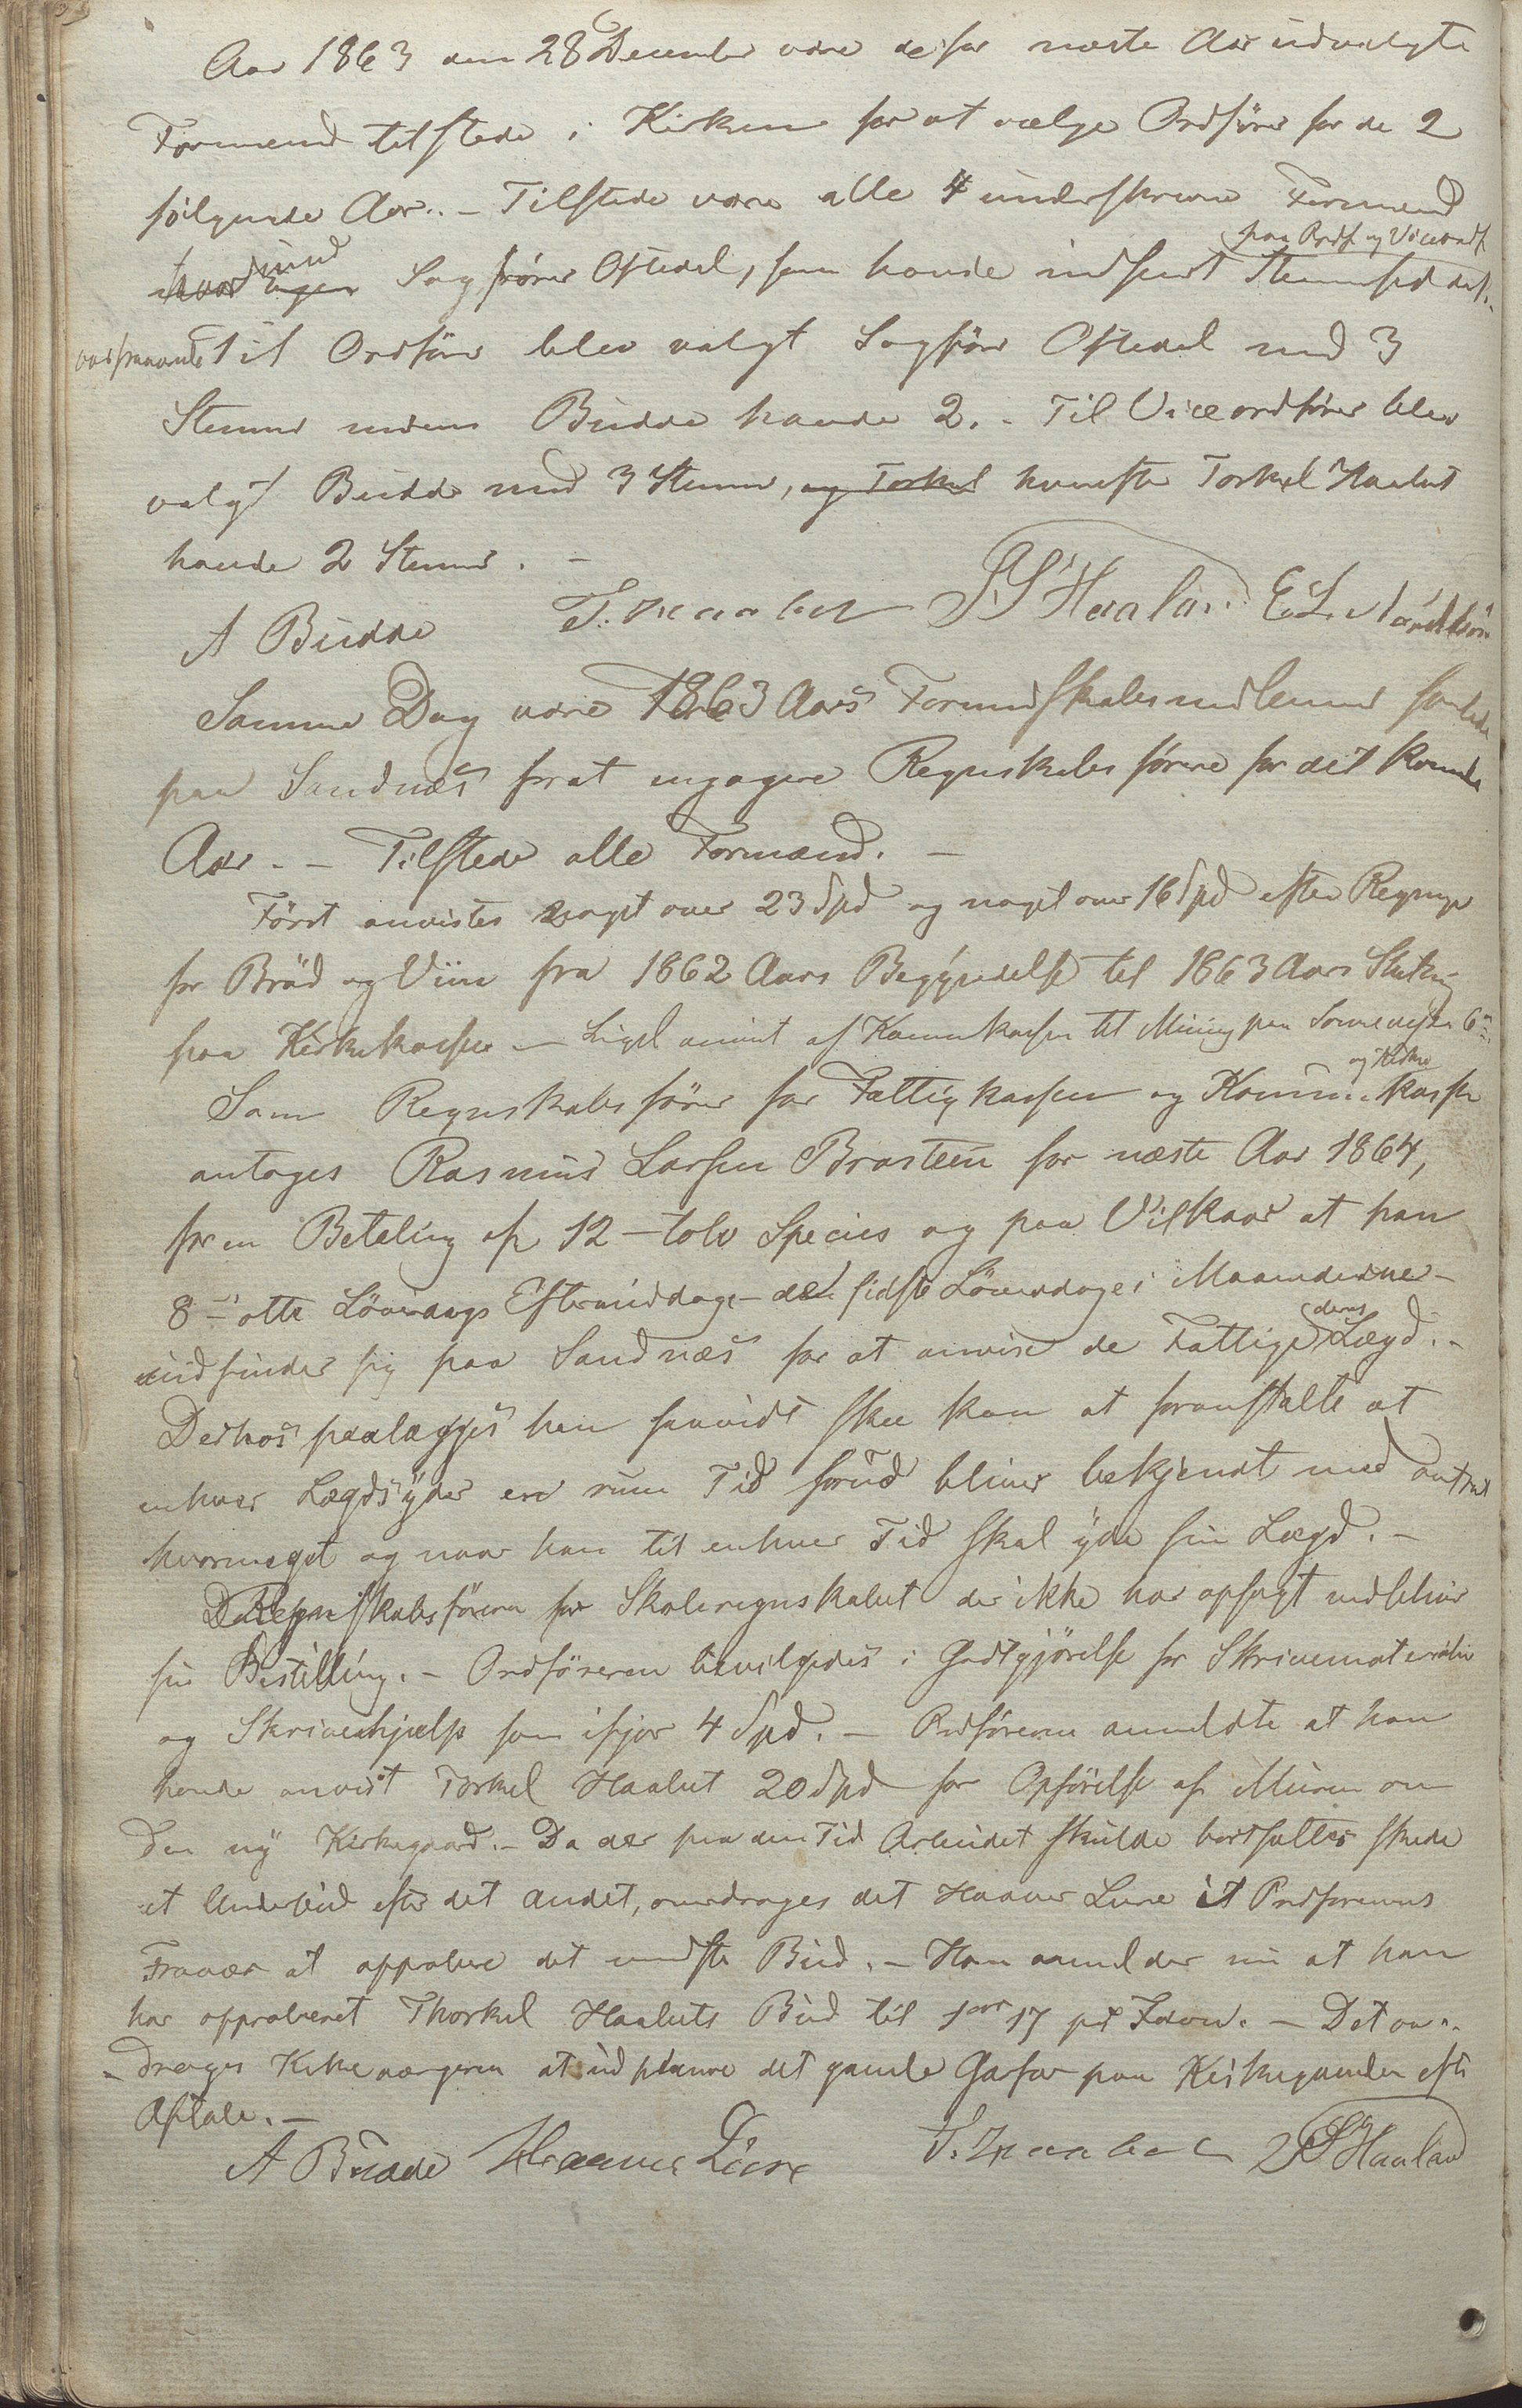 Aar 1863 den 28 December vare de for næste Aar udvalgte
Formænd tilstede i Kirken for at vælge Ordfører for de 2
følgende Aar. - Tilstede vare alle 4 underskrevne Formænd
paa Ordf. og Viceordf.
hvorimod Sagfører Oftedal, som havde indsendt Stemmeseddel
var fraværende Til Ordfører blev valgt Sagfører Oftedal med 3
Stemmer medens Budde havde 2. - Til Viceordfører blev
valgt Budde med 3 Stemmer, og Torkel hvorefter Torkel Haabet
havde 2 Stemmer. -
A Budde T. Haabet S. Haaland E. L.
Samme Dag vare 1863 Aars Formandskabsmedlemmer samlede
paa Sandnæs for at engagere Regnskabsfører for det kommende
Aar. - Tilstede alle Formænd. -
Først anvistes noget over 23 Spd og noget over 16 Spd efter Regninger
for Brød og Viin fra 1862 Aars Begyndelse til 1863 Aars Slutning
paa Kirkekassen. - Ligel. anvist af Kommekassen til Muring paa
og Kirke
Som Regnskabsfører for Fattigkassen og Komm. kassen
antoges Rasmus Larsen Brasteen for næste Aar 1864,
for en Betaling af 12 - tolv Species og paa Vilkaar at han
8 - otte Løverdags Eftermiddage - den sidste Løverdage i Maanederne -
indfinder sig paa Sandnæs for at anvise de Fattige deres Lægd. -
Derhos paalægges han saavidt skee kan at foranstalte at
enhver Lægdsyder en rum Tid forud bliver bekjendt med
hvormeget og naar han til enhver Tid skal yde sin Lægd. -
Regnskabsføreren for Skoleregnskabet der ikke har opsagt vedbliver
sin Bestilling. - Ordføreren bevilgedes i Godtgjørelse for Skrivematerialier
og Skrivehjælp som ifjor 4 Spd. - Ordføreren anmeldte at han
havde anvist Torkel Haabet 20 Spd for Opførelse af Muren om
den ny Kirkegaard. - Da der paa den Tid Arbeidet skulde bortsættes skede
et Underbud efter det andet, overdroges det Haaver Lure i Ordførerens
Fravær at approbere det mindste Bud. - Han anmelder nu at han
har approberet Thorkel Haabets Bud til 1 ort 17 pr Favn. - Det over-
drages Kirkeværgeren at udplanere det gamle Gjærde paa Kirkegaarden efter
Aftale. -
A Budde Haaver Lure T. Haabet S. Haaland